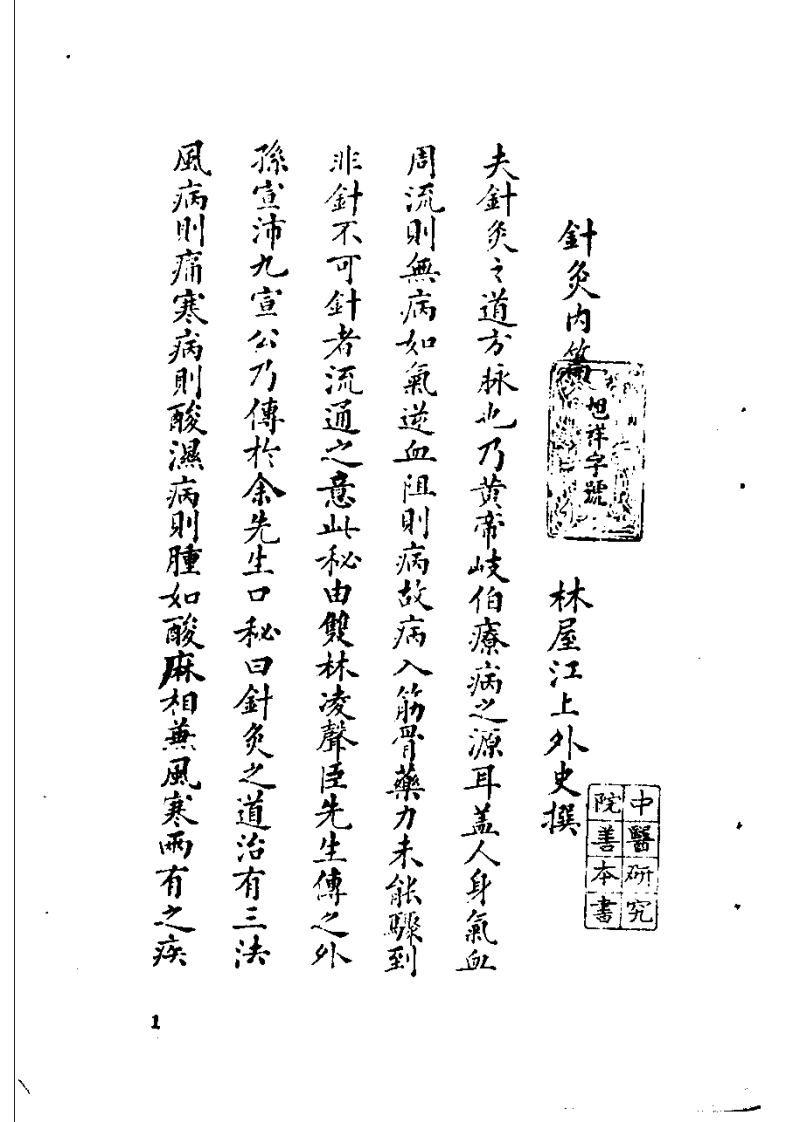 針灸內篇
林屋江上外史撰
夫針灸之道方脉也乃黄帝岐伯療病之源耳盖人身氣血
周流則無病如氣逆血阻則病故病入筋骨藥力未能驟到
非針不可針者流通之意此秘由雙林凌聲臣先生傳之外
孫宣沛九宣公乃傳於余先生口秘曰針灸之道治有三法
風病則痛寒病則酸濕病則腫如酸麻相兼風寒兩有之疾
旭祥字號
中醫研究
院善本書
1